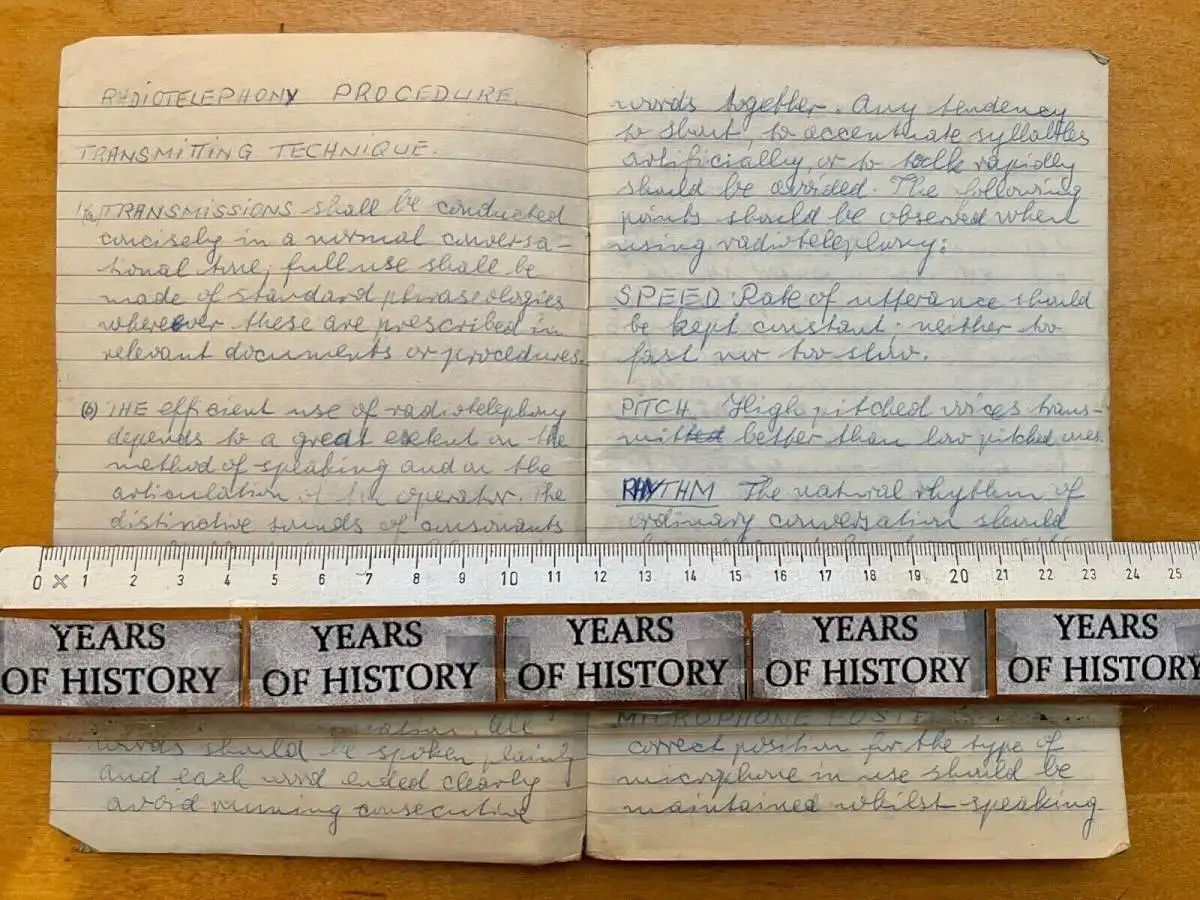 RADIOTELEPHONY PROCEDURE.
TRANSMITTING TECHNIQUE.
(a) TRANSMISSIONS shall be conducted
concisely in a normal conversa-
tional tone; full use shall be
made of standard phraseologies
wherever these are prescribed in
relevant documents or procedures.
(b) THE efficient use of radiotelephony
depends to a great extent on the
method of speaking and on the
articulation of the operator. The
distinctive sounds of consonants
All
words should be spoken plainly
and each word ended clearly
avoid running consecutive
words together. Any tendency
to shout, to accentuate syllables
artificially, or to talk rapidly
should be avoided. The following
points should be observed when
using radiotelephony:
SPEED. Rate of utterance should
be kept constant: neither too
fast nor too slow.
PITCH. High pitched voices trans-
mitted better than low pitched ones.
RHYTHM The natural rhythm of
ordinary conversation should
MICROPHONE
correct position for the type of
microphone in use should be
maintained whilst speaking
0 1 2 3 4 5 6 7 8 9 10 11 12 13 14 15 16 17 18 19 20 21 22 23 24 25
YEARS
OF HISTORY
YEARS
OF HISTORY
YEARS
OF HISTORY
YEARS
OF HISTORY
YEARS
OF HISTORY